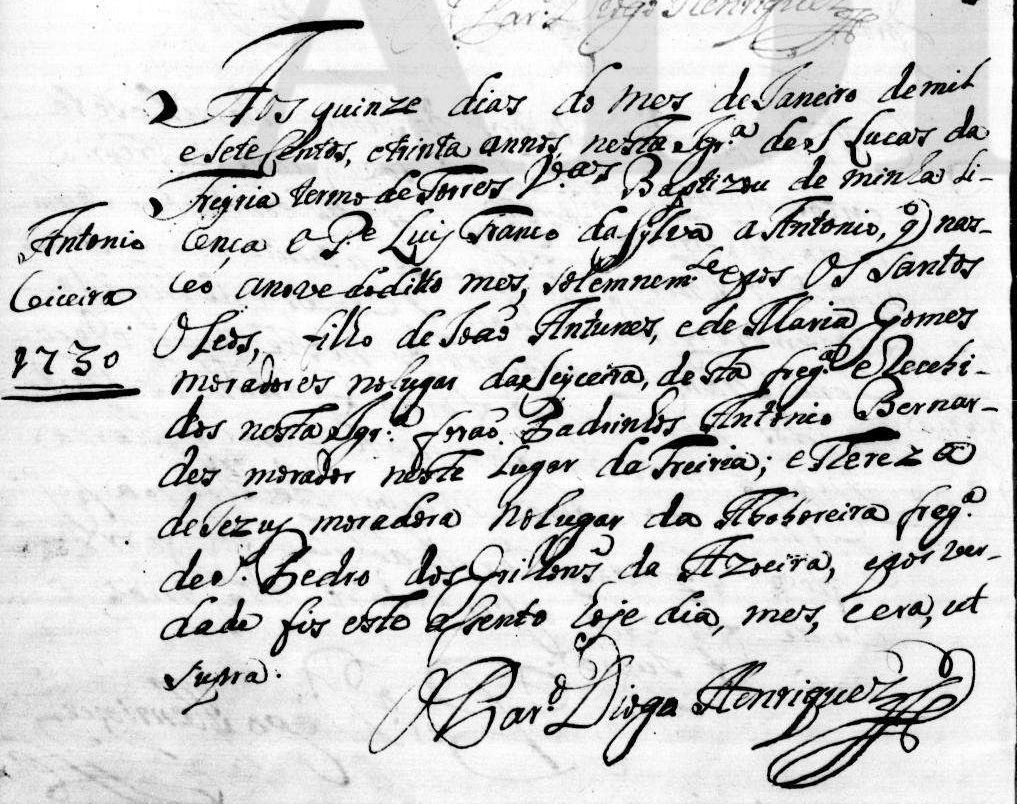 Bar.º Diogo Henriques
Aos quinze dias do mes de Janeiro de mil
e sete Centos, e trinta annos, nesta Igr.ª de S Lucas da
Freiria termo de Torres V.as Baptizou de minha li-
Antonio
Ceiceira
1730
cença o P.e Luis Franco da Sylva a Antonio, q̃ nas-
ceo a nove do ditto mes, solemnem.te e pos Os Santos
Oleos, filho de Joaõ Antunes, e de Maria Gomes
moradores no lugar da Seiyceira, desta freg.ª e Recebi-
dos nesta Igr.ª foraõ Padrinhos Antonio Bernar-
des morador neste Lugar da Freiria; e Tereza
de Jezus moradora no lugar da Aboboreira freg.ª
de S. Pedro dos Grilhons da Azoeira, e por ver-
dade fis este asento hoje dia, mes, e era, ut
supra.
O Bar.º Diogo Henriques